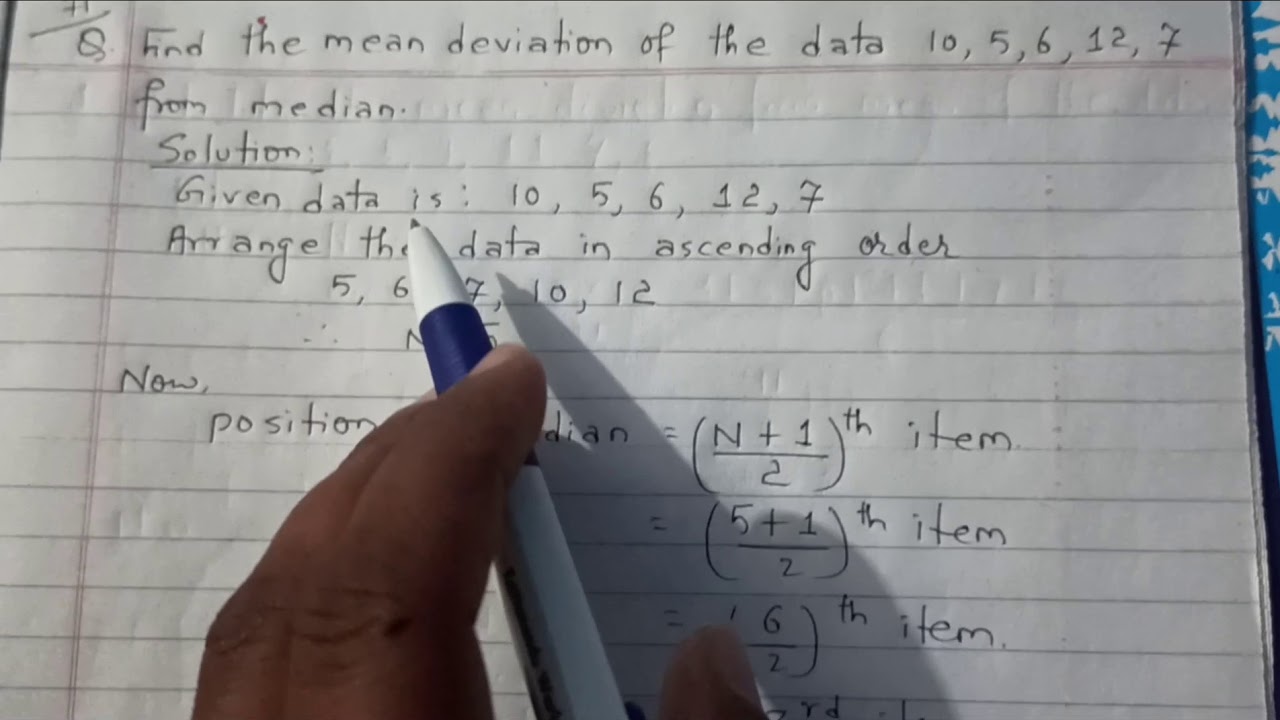 Q. Find the mean deviation of the data 10, 5, 6, 12, 7
from median.
Solution:
Given data is: 10, 5, 6, 12, 7
Arrange the data in ascending order
5, 6 7, 10, 12
∴ N 5
Now,
position dian = (N + 1 / 2)th item.
= (5 + 1 / 2)th item
= (6 / 2)th item.
rd